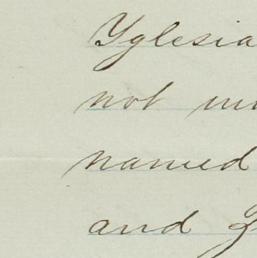 Yglesia
not
named
and